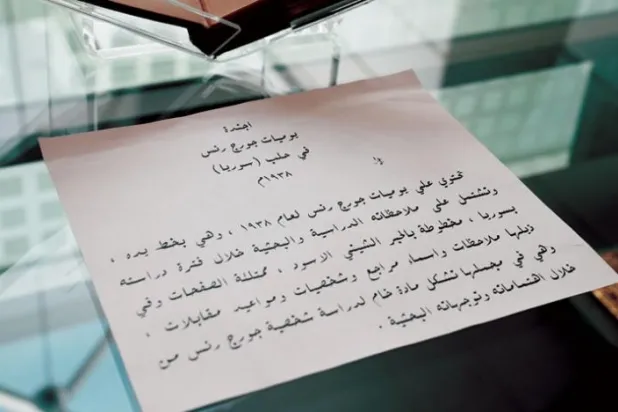 اجندة
يوميات جورج رنس
في حلب (سوريا)
١٩٣٨م
تحتوي علي يوميات جورج رنس لعام ١٩٣٨ ، وهي بخط يده ،
وتشتمل على ملاحظاته الدراسية والبحثية خلال فترة دراسته
بسوريا ، مخطوطة بالحبر الشيني الاسود ، ممتلئة الصفحات وفي
ذيلها ملاحظات واسماء مراجع وشخصيات ومواعيد مقابلات ،
وهي في مجملها تشكل مادة خام لدراسة شخصية جورج رنس من
خلال اهتماماته وتوجهاته البحثية .